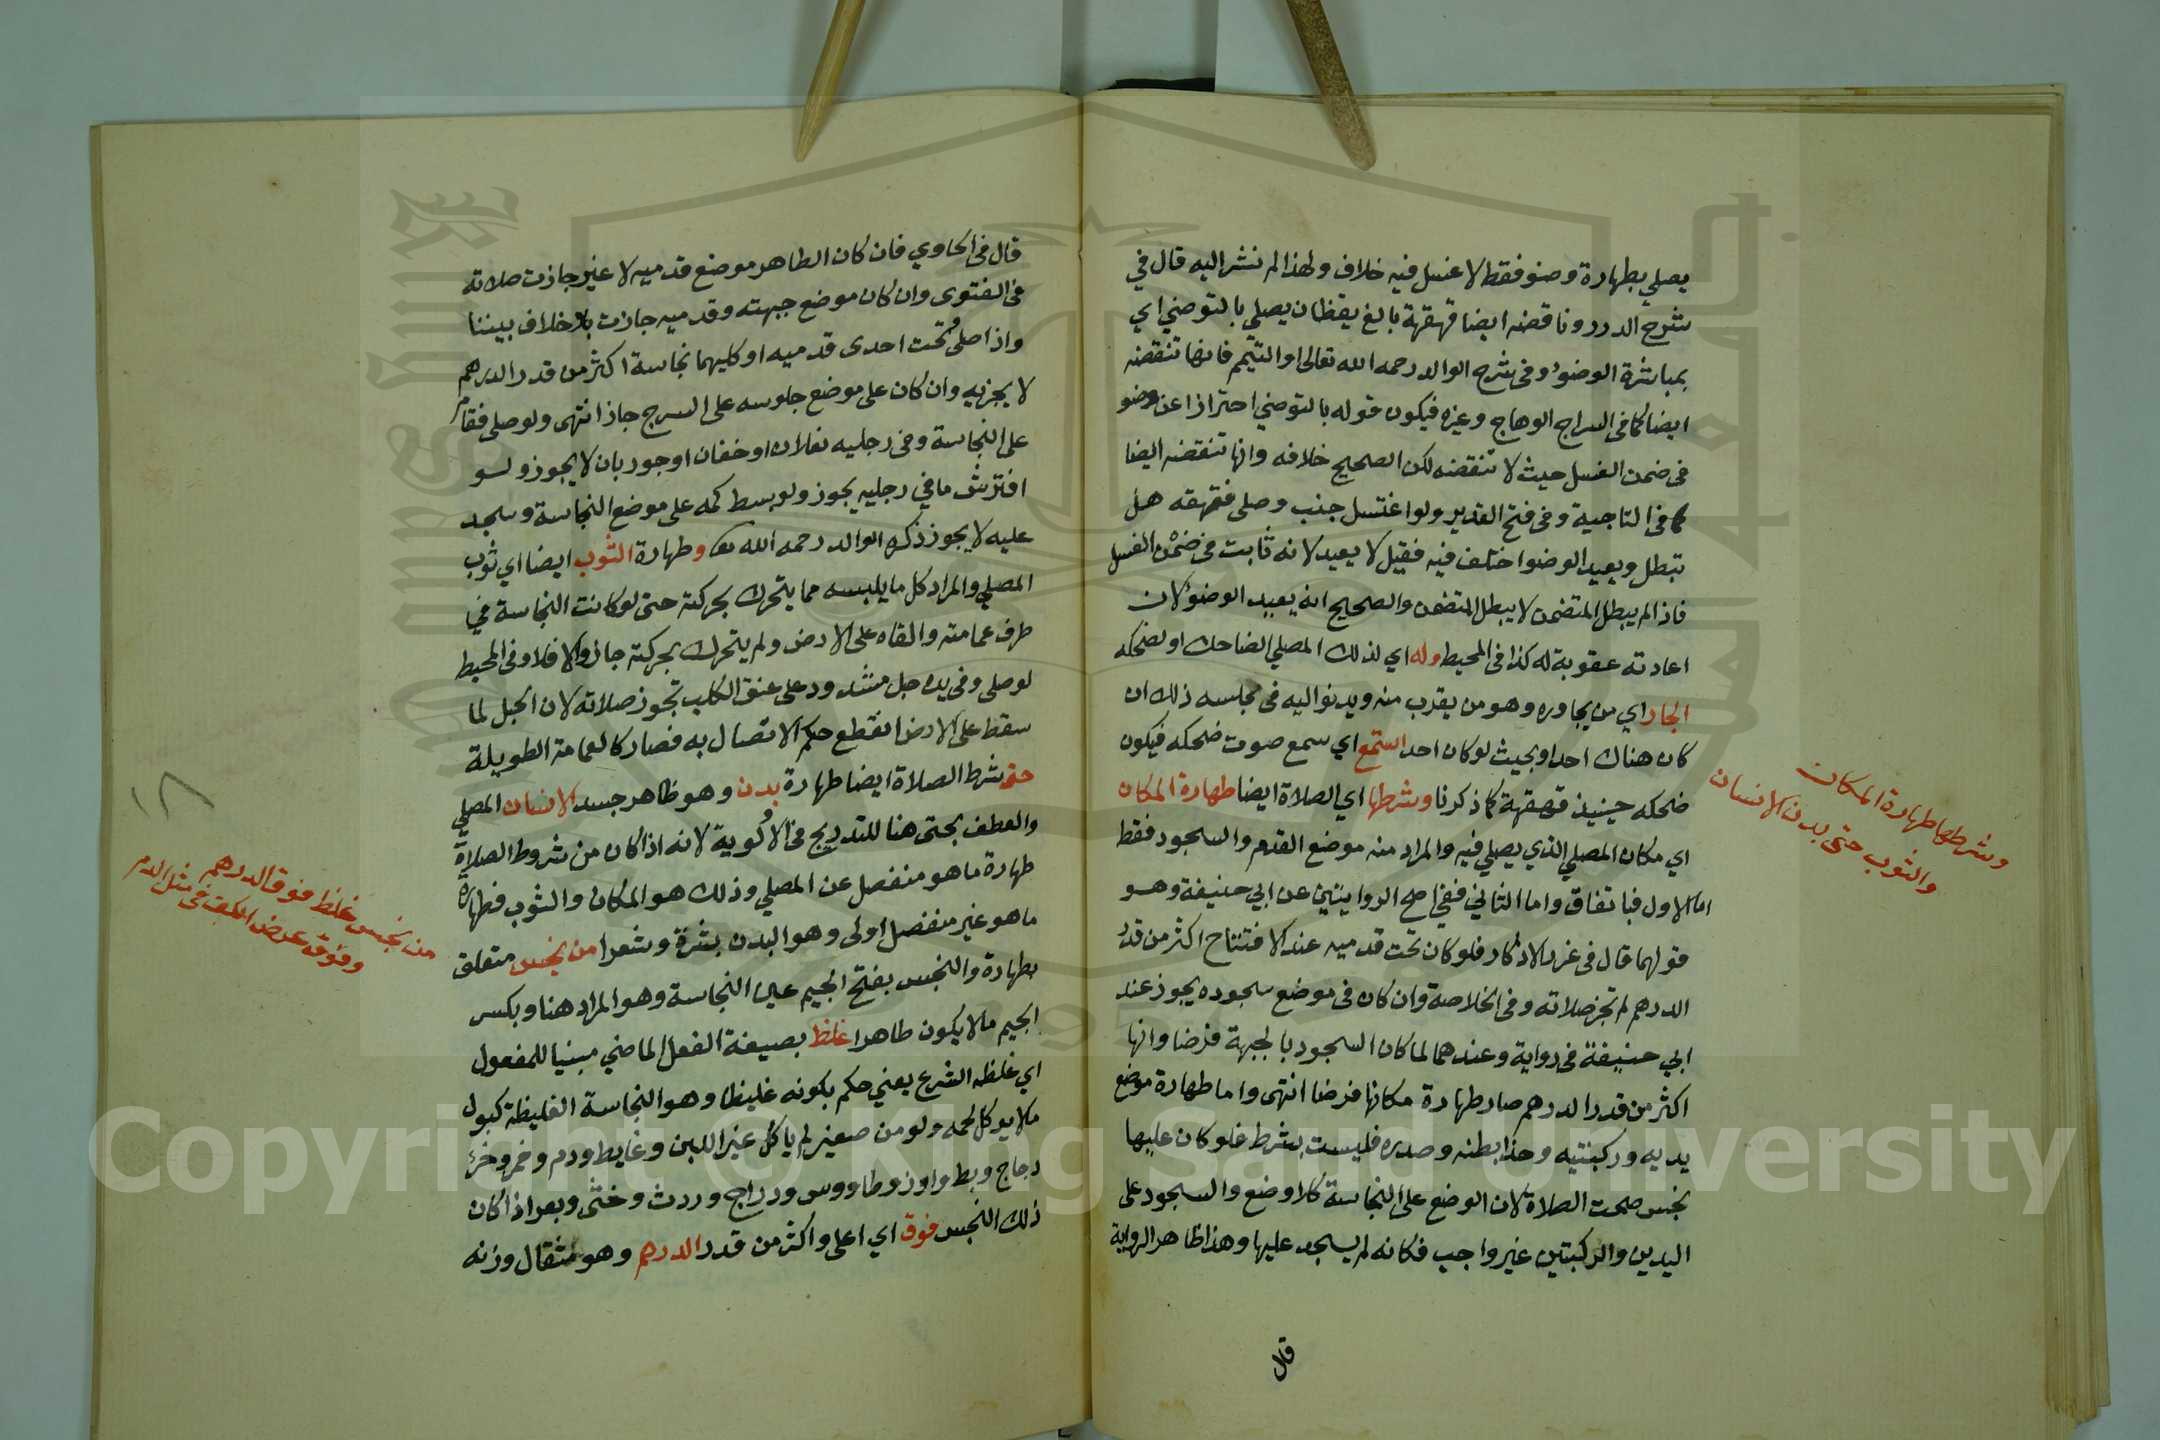 يصلي بطهارة وضو فقط لا غسل فيه خلاف ولهذا لم نشر اليه قال في
شرح الدرر وناقضه ايضا قهقهة بالغ يقظان يصلي بالتوضي اي
بمباشرة الوضوء وفى شرح الوالد رحمه الله تعالى او التيمم فانها تنقضه
ايضا كما فى السراج الوهاج وغيره فيكون قوله بالتوضي احترازا عن وضو
فى ضمن الغسل حيث لا تنقضه لكن الصحيح خلافه وانها تنقضه ايضا
كما فى التاجية وفى فتح القدير ولو اغتسل جنب وصلى فقهقه هل
تبطل ويعيد الوضوا ختلف فيه فقيل لا يعيد لانه ثابت فى ضمن الغسل
فاذا لم يبطل المتضمن لا يبطل المتضمن والصحيح انه يعيد الوضوء لان
اعادته عقوبة له كذا فى المحيط وله اي لذلك المصلي الضاحك او لضحكه
الجار اي من يجاوره وهو من يقرب منه ويدنو اليه فى مجلسه ذلك ان
كان هناك احد او بحيث لو كان احد استمع اي سمع صوت ضحكه فيكون
ضحكه حينيذ قهقهة كما ذكرنا وشرطها اي الصلاة ايضا طهارة المكان
اي مكان المصلي الذي يصلي فيه والمراد منه موضع القدم والسجود فقط
اما الاول فباتفاق واما الثاني ففي اصح الروايتين عن ابي حنيفة وهو
قولهما قال فى غرر الاذكار فلو كان تحت قدميه عند الافتتاح اكثر من قدر
الدرهم لم تجز صلاته وفى الخلاصة وان كان فى موضع سجوده يجوز عند
ابي حنيفة فى رواية وعندهما لما كان السجود بالجبهة فرضا وانها
اكثر من قدر الدرهم صار طهارة مكانها فرضا انتهى واما طهارة موضع
يديه وركبتيه وحذا بطنه وصدره فليست بشرط فلو كان عليها
نجس صحت الصلاة لان الوضع على النجاسة كلا وضع والسجود على
اليدين والركبتين غير واجب فكانه لم يسجد عليها وهذا ظاهر الرواية
قال
وشرطها طهارة المكان
والثوب حتى بدن الانسان
قال فى الحاوي فان كان الطاهر موضع قدميه لا غير جازت صلاته
فى الفتوى وان كان موضع جبهته وقدميه جازت بلا خلاف بيننا
واذا صلى وتحت احدى قدميه او كليهما نجاسة اكثر من قدر الدرهم
لا يجزيه وان كان على موضع جلوسه على السرج جاز انتهى ولو صلى فقام
على النجاسة وفى رجليه نعلان او خفان او جوربان لا يجوز ولو
افترش ما في رجليه يجوز ولو بسط كمه على موضع النجاسة وسجد
عليه لا يجوز ذكره الوالد رحمه الله تع وطهارة الثوب ايضا اي ثوب
المصلي والمراد كل ما يلبسه مما يتحرك بحركته حتى لو كانت النجاسة في
طرف عمامته والقاه على الارض ولم يتحرك بحركته جاز والا فلا وفى المحيط
لو صلى وفى يده حبل مشدود على عنق الكلب تجوز صلاته لان الحبل لما
سقط على الارض انقطع حكم الاتصال به فصار كالعمامة الطويلة
حتى شرط الصلاة ايضا طهارة بدن وهو ظاهر جسد الانسان المصلي
والعطف بحتى هنا للتدريج فى الاولوية لانه اذا كان من شروط الصلاة
طهارة ما هو منفصل عن المصلي وذلك هو المكان والثوب فطهارة
ما هو غير منفصل اولى وهو البدن بشرة وشعرا من نجس متعلق
بطهارة والنجس بفتح الجيم عين النجاسة وهو المراد هنا وبكسر
الجيم ما لا يكون طاهرا غلظ بصيغة الفعل الماضي مبنيا للمفعول
اي غلظه الشرع يعني حكم بكونه غليظا وهو النجاسة الغليظة كبول
ما لا يوكل لحمه ولو من صغير لم ياكل غير اللبن وغايط ودم وخمر وخرء
دجاج وبط واوز وطاووس ودراج وروث وخثى وبعر اذا كان
ذلك النجس فوق اي اعلى واكثر من قدر الدرهم وهو مثقال وزنه
من نجس غلظ فوق الدرهم
وفوق عرض الكف فى مثل الدم
١٨
Copyright © King Saud University